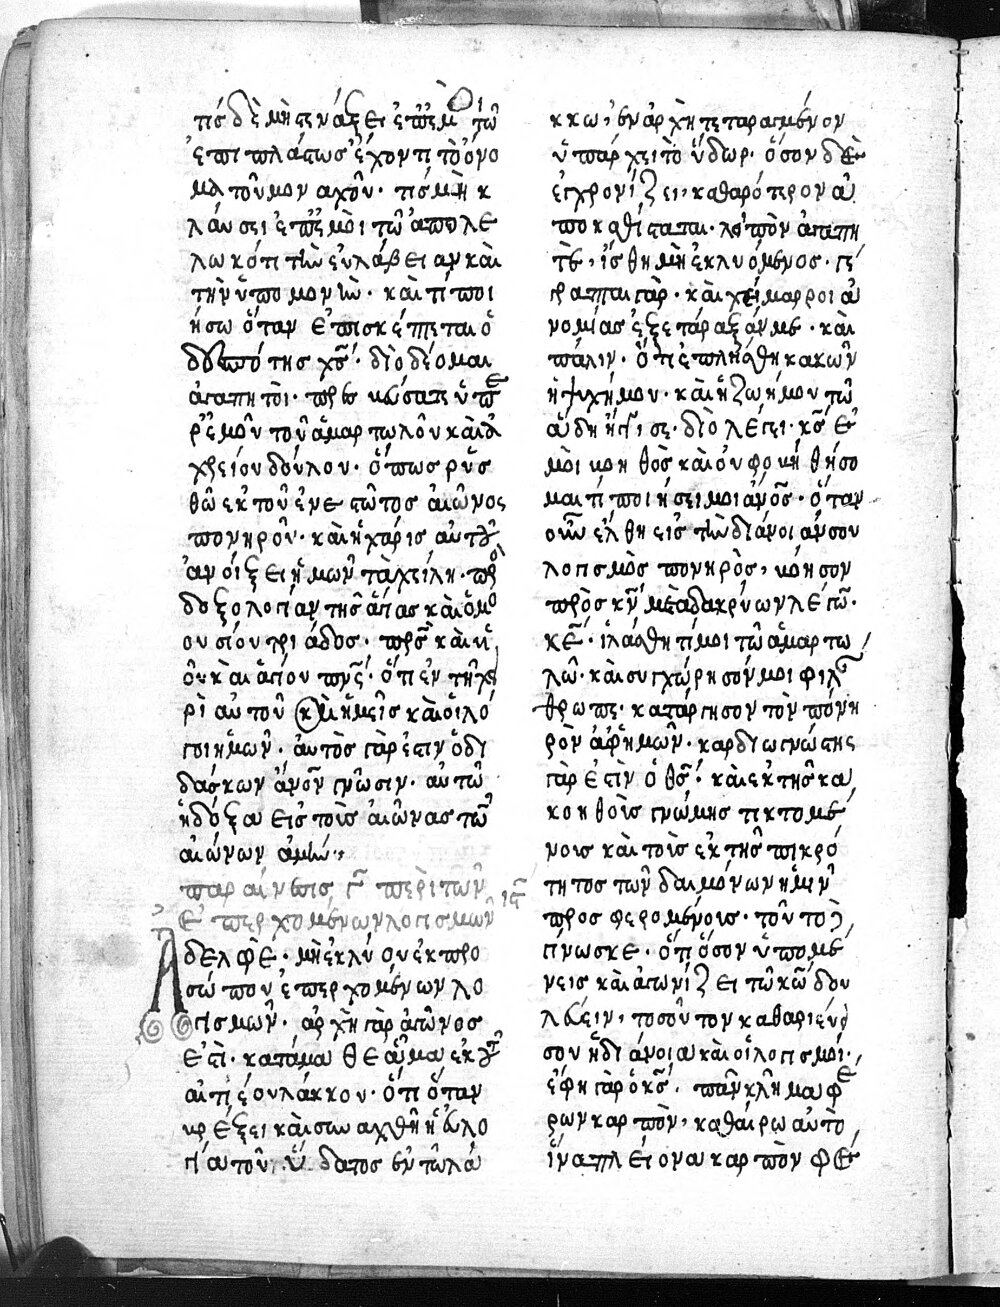 τίς δὲ μὴ στενάξει ἐπ' ἐμοὶ τῶ
ἐπιπλάστως ἔχοντι τὸ ὄνο
μα τοῦ μοναχοῦ· τίς μὴ κ
λαύσει ἐπ' ἐμὸι τῶ ἀπολε
λωκότι τὴν εὐλάβειαν καὶ
τὴν ὑπομονὴν· καὶ τί ποι
ήσω ὅταν ἐπισκέπτεται ὁ
δεσπότης χς· διὸ δέομαι
ἀγαπητοὶ· ὑπὲ
ρ ἐμοῦ τοῦ ἁμαρτωλοῦ καὶ ἀ
χρείου δούλου· ὅπως ρυσ
θῶ ἐκ τοῦ ἐνεστῶτος αἰῶνος
πονηροῦ· καὶ ἡ χάρις αὐτοῦ
ἀνοίξει ἡμῶν τὰ χείλη· πρὸς
δοξολογίαν τῆς ἁγίας καὶ ὁμο
ουσίου τριάδος· πρς καὶ υἱ
οῦ καὶ ἁγίου πνς· ὅτι ἐν τῆ χει
ρὶ αὐτοῦ καὶ ἡμεῖς καὶ οἱ λό
γοι ἡμῶν· αὐτὸς γάρ ἐστιν ὁ δι
δάσκων ἀνον γνῶσιν· αὐτῶ
ἡ δόξα εἰς τοὺς αἰῶνας τῶν
αἰώνων ἀμήν·
παραίνεσις περὶ τῶν
ἐπερχομένων λογισμῶν
Ἀδελφέ· μὴ ἐκλύου ἐκ προ
σώπου ἐπερχομένων λο
γισμῶν· ἀρχὴ γὰρ ἀγῶνος
ἐστὶ· κατάμαθε ἅμα ἐκ τοῦ
αἰτίου λάκκου· ὅτι ὅταν
βρέξει καὶ συναχθῆ ἡ ἀλο
γία τοῦ ὕδατος ἐν τῶ λά
κκω, ἐν ἀρχῆ τεταραγμένον
ὑπάρχει τὸ ὕδωρ· ὅσον δὲ
ἐγχρονίζει· καθαρότερον ἀ
ποκαθίσταται· λοιπὸν ἀγαπη
τὲ, ἴσθι μὴ ἐκλυόμενος· γέ
γραπται γὰρ· καὶ χείμαρροι ἀ
νομίας ἐξετάραξάν με· καὶ
πάλιν· ὅτι ἐπλήσθη κακῶν
ἡ ψυχή μου· καὶ ἡ ζωή μου τῶ
άδη ἤγγισε· διὸ λέγει· κς ἐ
μοὶ βοηθὸς καὶ οὐ φοβηθήσο
μαι τί ποιήσει μοι ἀνος· ὅταν
οὖν ἔλθη εἰς τὴν διάνοιάν σου
λογισμὸς πονηρὸς, βόησον
πρὸς κν μετὰ δακρύων λέγων·
κε· ἱλάσθητί μοι τῶ ἁμαρτω
λῶ· καὶ συγχώρησόν μοι φιλάν
θρωπε· κατάργησον τὸν πονη
ρὸν ἀφ' ἡμῶν· καρδιογνώστης
γὰρ ἐστὶν ὁ θς· καὶ ἐκ τῆς κα
κοηθοῦς γνώμης τικτομέ
νοις καὶ τοῖς ἐκ τῆς πικρό
τητος τῶν δαιμόνων ἡμῖν
προσφερομένοις· τοῦτο
γίνωσκε· ὅτι ὅσον ὑπομέ
νεις καὶ ἀγωνίζει τῶ κω δου
λεύειν, τοσοῦτον καθαρι
σον ἡ διάνοια καὶ οἱ λογισμοί·
ἔφη γὰρ ὁ κς· πᾶν κλῆμα φέ
ρων καρπὸν, καθαίρω αὐτὸ
ἵνα πλείονα καρπὸν φέ